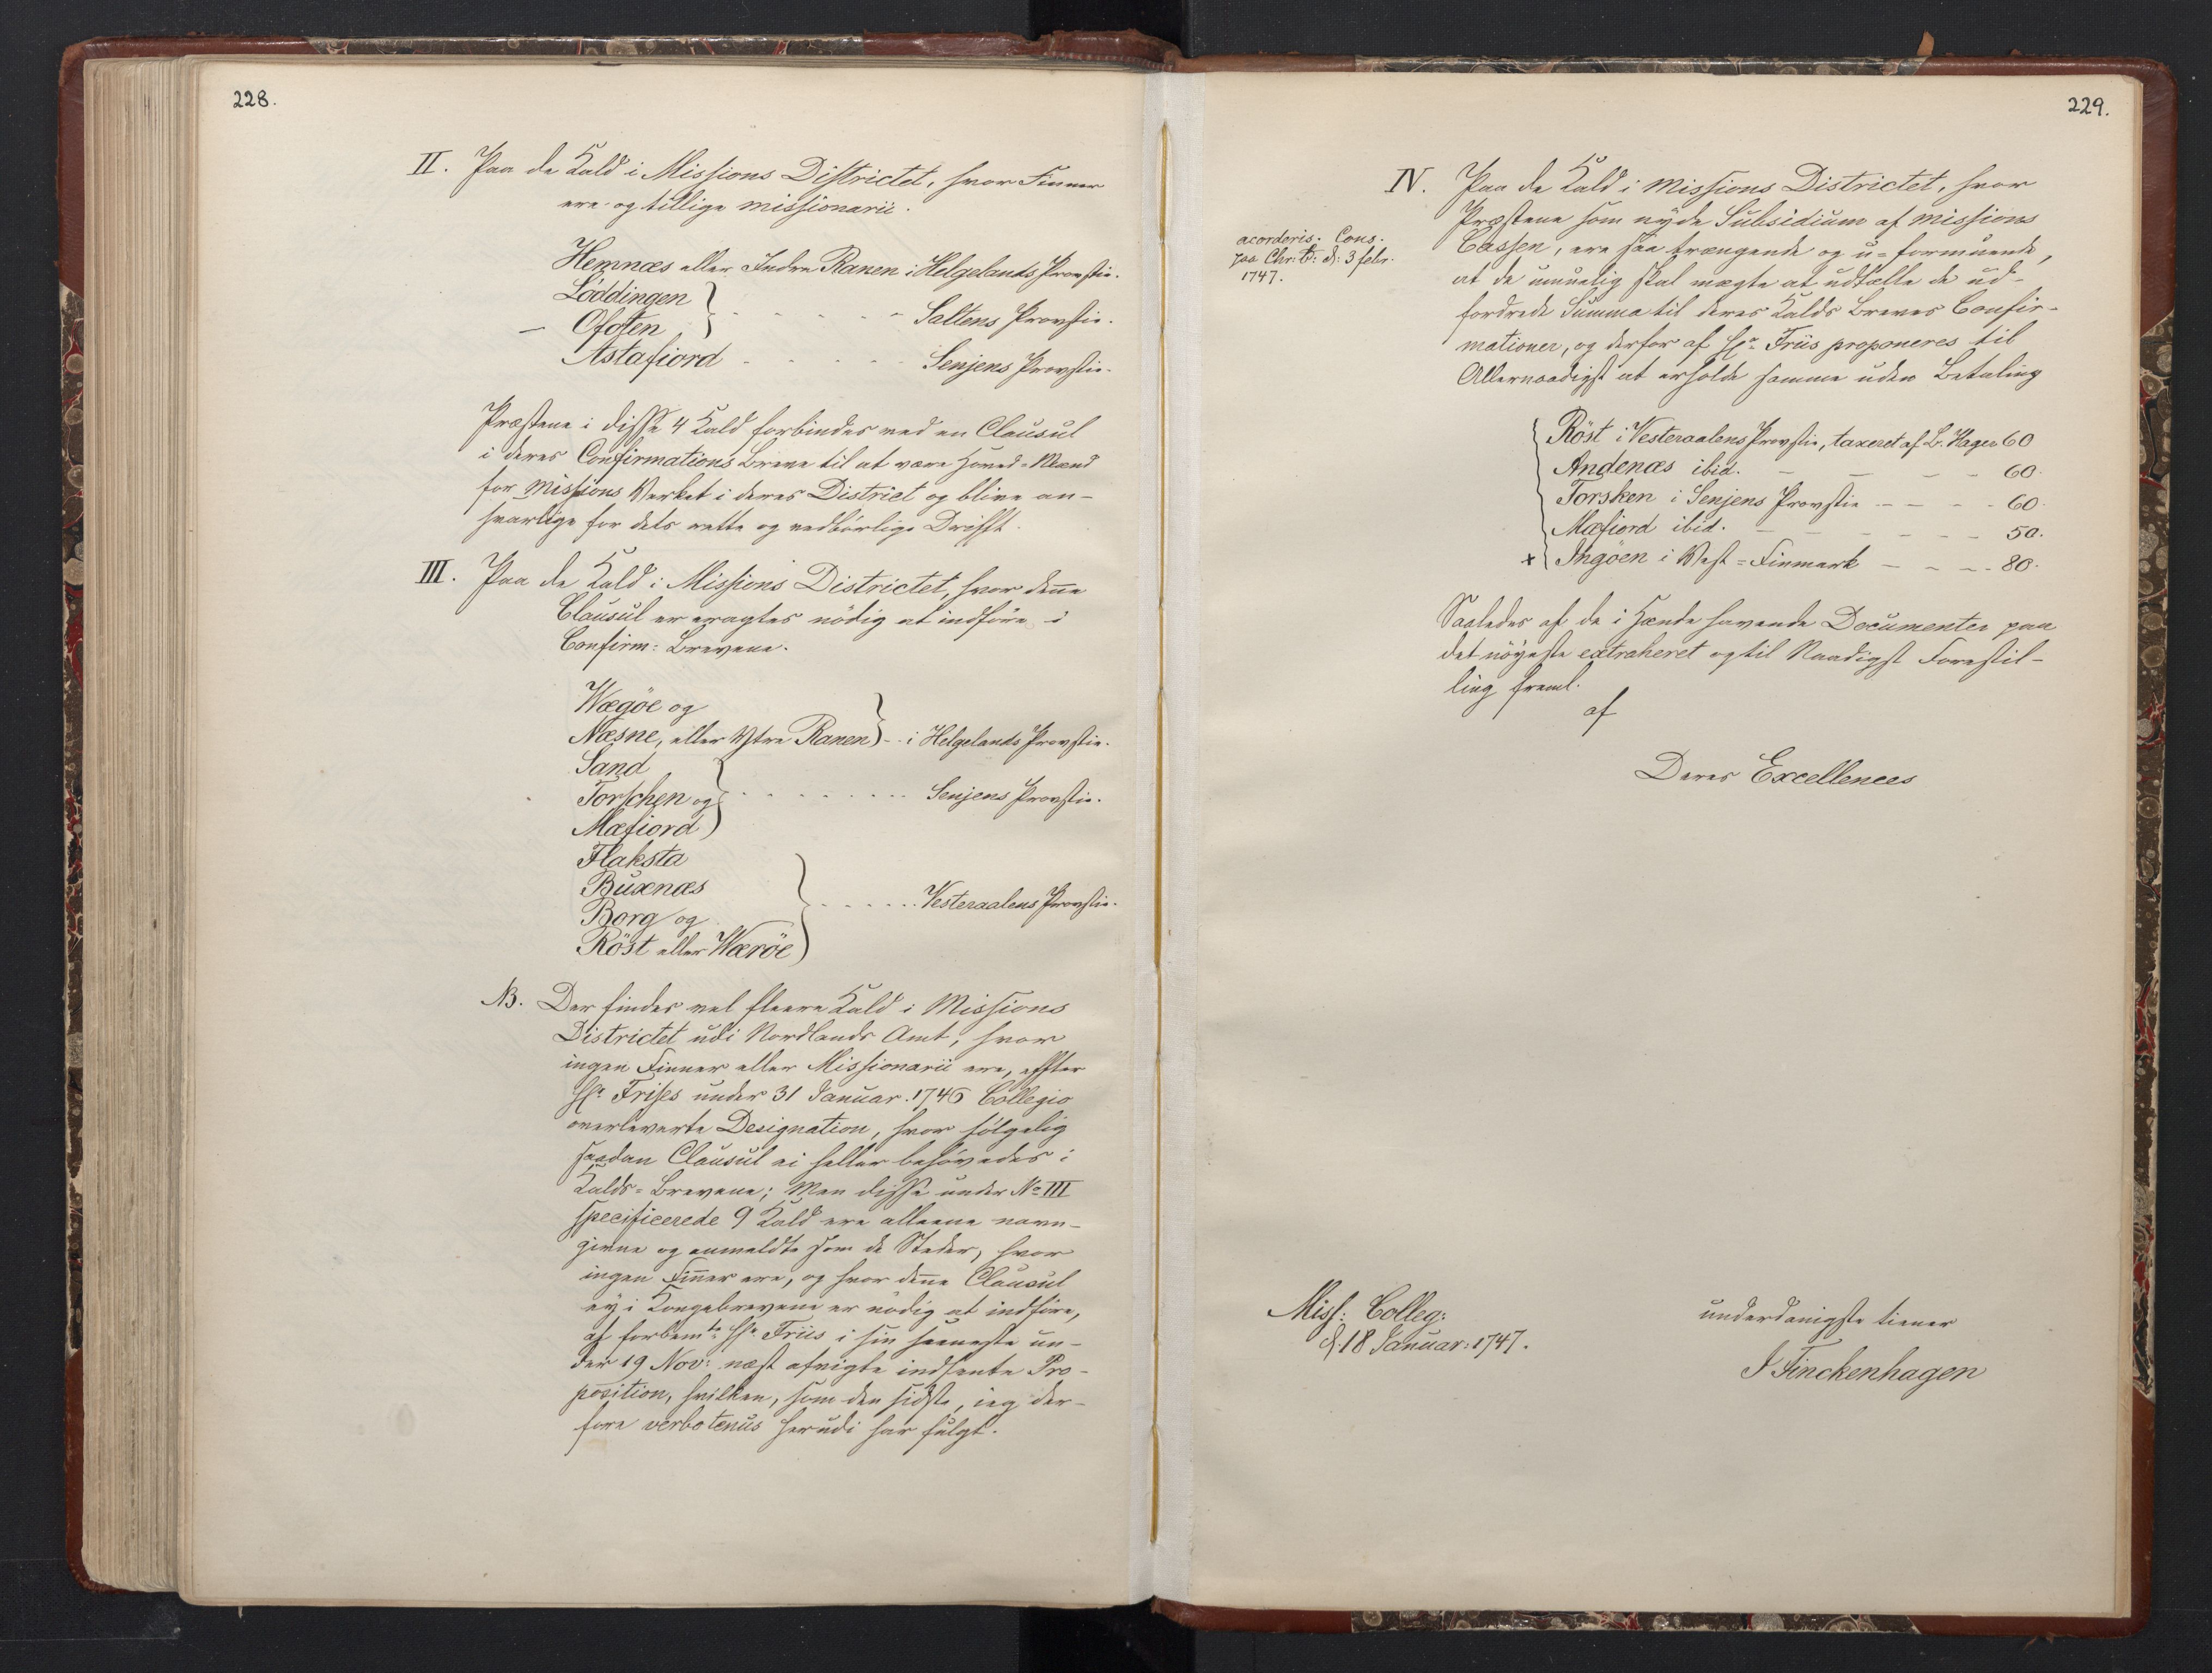 228.
II. Paa de Kald i Missions Districtet, hvor Finner
ere og tillige missionarii.
Hemnæs eller Indre Ranen i Helgelands Provstie.
Löddingen
— Ofoten } - - - - - - Saltens Provstie.
Astafiord - - - - - - Senjens Provstie.
Præstene i disse 4 Kald forbindes ved en Clausul
i deres Confirmations Breve til at være Hoved-Mænd
for Missions Verket i deres District og blive an-
svarlige for dets rette og vedbörlige Drifft.
III. Paa de Kald i Missions Districtet, hvor denne
Clausul er eragtes nödig at indföre i
Confirm: Brevene.
Wægöe og
Næsne, eller Ytre Ranen } - - i Helgelands Provstie.
Sand
Torschen og } - - - - - - - - Senjens Provstie.
Mæfiord
Flaksta
Buxnæs
Borg og } - - - - - - Vesteraalens Provstie.
Röst eller Wæröe
NB. Der findes vel fleere Kald i Missions
Districtet udi Nordlands Amt, hvor
ingen Finner eller Missionarii ere, effter
Hr. Frises under 31 Januar. 1746 Collegio
overleverte Designation, hvor fölgelig
saadan Clausul ei heller behövedes i
Kalds-Brevene; Men disse under No III
specificerede 9 Kald ere alleene navn-
givne og anmeldte som de Steder, hvor
ingen Finner ere, og hvor denne Clausul
ey i Kongebrevene er nödig at indföre,
af forbemte Hr. Friis i sin seeneste un-
der 19 Nov: næst afvigte indsente Pro-
position, hvilken, som den sidste, ieg der-
fore verbotenus herudi har fulgt.
229.
IV. Paa de Kald i Missions Districtet, hvor
Præstene som nyde Subsidium af missions
Cassen, ere saa trængende og u-formuende,
at de umuelig skal mægte at udtælle de ud-
fordrede Summa til deres Kalds Breves Confir-
mationer, og derfor af Hr. Friis proponeres til
Allernaadigst at erholde samme uden Betaling
acorderis: Cons.
paa Chr: B: d: 3 febr.
1747.
Röst i Vesteraalens Provstie, taxeret af B. Hagen 60
Andenæs ibid. - - - - 60.
Torsken i Senjens Provstie - - - - 60.
Mæfiord ibid. - - - - - - 50.
+ Ingöen i Vest-Finmark - - - - 80.
Saaledes af de i Hænde havende Documenter paa
det nöyeste extraheret og til Naadigst Forestil-
ling freml.
af
Deres Excellences
underdanigste tiener
J Finckenhagen
Miss: Colleg:
d: 18 Januar: 1747.